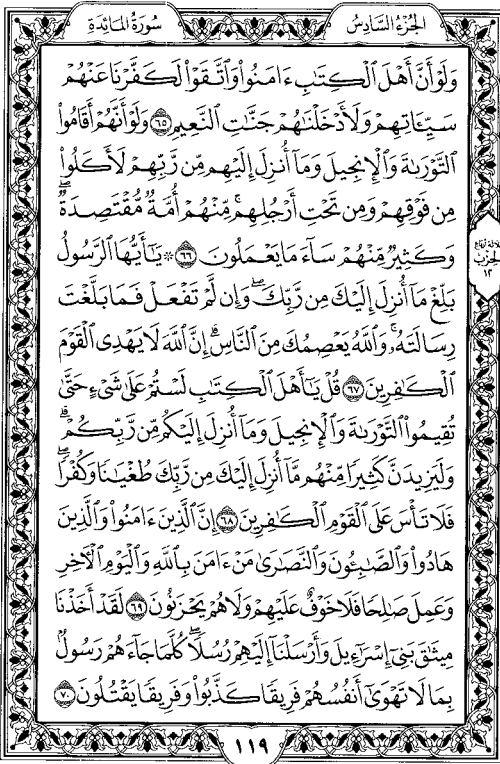 سُورَةُ المَائِدَةِ
الجُزْءُ السَّادِسُ
وَلَوْ أَنَّ أَهْلَ ٱلْكِتَٰبِ ءَامَنُوا۟ وَٱتَّقَوْا۟ لَكَفَّرْنَا عَنْهُمْ
سَيِّـَٔاتِهِمْ وَلَأَدْخَلْنَٰهُمْ جَنَّٰتِ ٱلنَّعِيمِ ٦٥ وَلَوْ أَنَّهُمْ أَقَامُوا۟
ٱلتَّوْرَىٰةَ وَٱلْإِنجِيلَ وَمَآ أُنزِلَ إِلَيْهِم مِّن رَّبِّهِمْ لَأَكَلُوا۟
مِن فَوْقِهِمْ وَمِن تَحْتِ أَرْجُلِهِم ۚ مِّنْهُمْ أُمَّةٌ مُّقْتَصِدَةٌ ۖ
وَكَثِيرٌ مِّنْهُمْ سَآءَ مَا يَعْمَلُونَ ٦٦ ۞ يَٰٓأَيُّهَا ٱلرَّسُولُ
بَلِّغْ مَآ أُنزِلَ إِلَيْكَ مِن رَّبِّكَ ۖ وَإِن لَّمْ تَفْعَلْ فَمَا بَلَّغْتَ
رِسَالَتَهُۥ ۚ وَٱللَّهُ يَعْصِمُكَ مِنَ ٱلنَّاسِ ۗ إِنَّ ٱللَّهَ لَا يَهْدِى ٱلْقَوْمَ
ٱلْكَٰفِرِينَ ٦٧ قُلْ يَٰٓأَهْلَ ٱلْكِتَٰبِ لَسْتُمْ عَلَىٰ شَىْءٍ حَتَّىٰ
تُقِيمُوا۟ ٱلتَّوْرَىٰةَ وَٱلْإِنجِيلَ وَمَآ أُنزِلَ إِلَيْكُم مِّن رَّبِّكُمْ ۗ
وَلَيَزِيدَنَّ كَثِيرًا مِّنْهُم مَّآ أُنزِلَ إِلَيْكَ مِن رَّبِّكَ طُغْيَٰنًا وَكُفْرًا ۖ
فَلَا تَأْسَ عَلَى ٱلْقَوْمِ ٱلْكَٰفِرِينَ ٦٨ إِنَّ ٱلَّذِينَ ءَامَنُوا۟ وَٱلَّذِينَ
هَادُوا۟ وَٱلصَّٰبِـُٔونَ وَٱلنَّصَٰرَىٰ مَنْ ءَامَنَ بِٱللَّهِ وَٱلْيَوْمِ ٱلْـَٔاخِرِ
وَعَمِلَ صَٰلِحًا فَلَا خَوْفٌ عَلَيْهِمْ وَلَا هُمْ يَحْزَنُونَ ٦٩ لَقَدْ أَخَذْنَا
مِيثَٰقَ بَنِىٓ إِسْرَٰٓءِيلَ وَأَرْسَلْنَآ إِلَيْهِمْ رُسُلًا ۖ كُلَّمَا جَآءَهُمْ رَسُولٌۢ
بِمَا لَا تَهْوَىٰٓ أَنفُسُهُمْ فَرِيقًا كَذَّبُوا۟ وَفَرِيقًا يَقْتُلُونَ ٧٠
ثلاثة أرباع
الحزب
١٢
١١٩